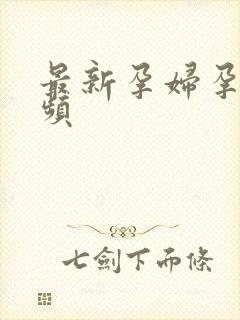 最新孕婦孕
頻
七劍下而條